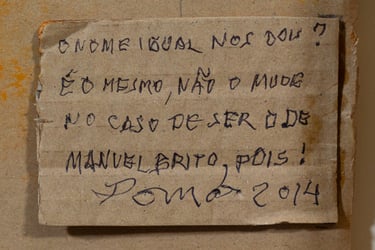 O NOME IGUAL NOS DOIS?
É O MESMO, NÃO O MUDE
NO CASO DE SER O DE
MANUEL BRITO, POIS!
Pomar 2014